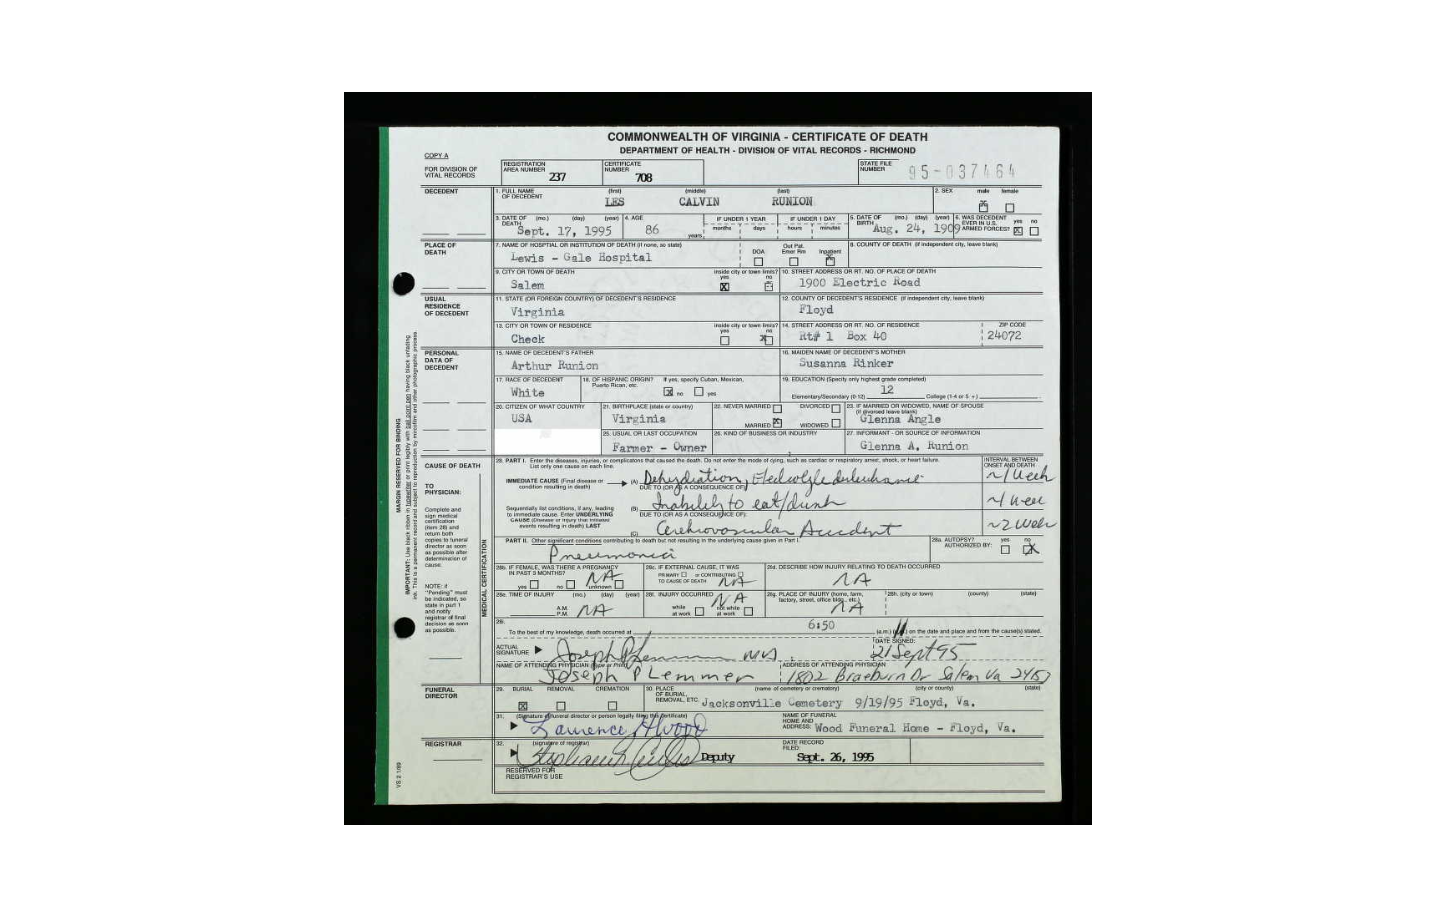 COMMONWEALTH OF VIRGINIA - CERTIFICATE OF DEATH
DEPARTMENT OF HEALTH - DIVISION OF VITAL RECORDS - RICHMOND
COPY A
FOR DIVISION OF VITAL RECORDS
REGISTRATION AREA NUMBER 237
CERTIFICATE NUMBER 708
STATE FILE NUMBER 95-037464
DECEDENT
1. FULL NAME OF DECEDENT (first) (middle) (last)
LES CALVIN RUNION
2. SEX male female
3. DATE OF DEATH (mo.) (day) (year) Sept. 17, 1995
4. AGE 86 years
IF UNDER 1 YEAR months days
IF UNDER 1 DAY hours minutes
5. DATE OF BIRTH (mo.) (day) (year) Aug. 24, 1909
6. WAS DECEDENT EVER IN U.S. ARMED FORCES? yes no X
PLACE OF DEATH
7. NAME OF HOSPITAL OR INSTITUTION OF DEATH (if none, so state)
Lewis - Gale Hospital
DOA Out Pat. Emer Rm Inpatient
8. COUNTY OF DEATH (if independent city, leave blank)
9. CITY OR TOWN OF DEATH inside city or town limits? yes no
Salem X
10. STREET ADDRESS OR RT. NO. OF PLACE OF DEATH
1900 Electric Road
USUAL RESIDENCE OF DECEDENT
11. STATE (OR FOREIGN COUNTRY) OF DECEDENT'S RESIDENCE
Virginia
12. COUNTY OF DECEDENT'S RESIDENCE (if independent city, leave blank)
Floyd
13. CITY OR TOWN OF RESIDENCE inside city or town limits? yes no
Check X
14. STREET ADDRESS OR RT. NO. OF RESIDENCE ZIP CODE
Rt# 1 Box 40 24072
PERSONAL DATA OF DECEDENT
15. NAME OF DECEDENT'S FATHER
Arthur Runion
16. MAIDEN NAME OF DECEDENT'S MOTHER
Susanna Rinker
17. RACE OF DECEDENT
White
18. OF HISPANIC ORIGIN? If yes, specify Cuban, Mexican, Puerto Rican, etc.
X no yes
19. EDUCATION (Specify only highest grade completed)
Elementary/Secondary (0-12) 12 College (1-4 or 5 +)
20. CITIZEN OF WHAT COUNTRY
USA
21. BIRTHPLACE (state or country)
Virginia
22. NEVER MARRIED DIVORCED
MARRIED X WIDOWED
23. IF MARRIED OR WIDOWED, NAME OF SPOUSE (if divorced leave blank)
Glenna Angle
25. USUAL OR LAST OCCUPATION
Farmer - Owner
26. KIND OF BUSINESS OR INDUSTRY
27. INFORMANT - OR SOURCE OF INFORMATION
Glenna A. Runion
CAUSE OF DEATH
TO PHYSICIAN:
Complete and sign medical certification (item 28) and return both copies to funeral director as soon as possible after determination of cause.
NOTE: If "Pending" must be indicated, so state in part 1 and notify registrar of final decision as soon as possible.
MEDICAL CERTIFICATION
28. PART I. Enter the diseases, injuries, or complications that caused the death. Do not enter the mode of dying, such as cardiac or respiratory arrest, shock, or heart failure.
List only one cause on each line.
INTERVAL BETWEEN ONSET AND DEATH
IMMEDIATE CAUSE (Final disease or condition resulting in death) (A) Dehydration, Electrolyte disturbance ~1 Week
DUE TO (OR AS A CONSEQUENCE OF):
Sequentially list conditions, if any, leading to immediate cause. Enter UNDERLYING CAUSE (Disease or injury that initiated events resulting in death) LAST
(B) Inability to eat/drink ~1 Week
DUE TO (OR AS A CONSEQUENCE OF):
(C) Cerebrovascular Accident ~2 Week
PART II. Other significant conditions contributing to death but not resulting in the underlying cause given in Part I.
Pneumonia
28a. AUTOPSY? AUTHORIZED BY: yes no X
28b. IF FEMALE, WAS THERE A PREGNANCY IN PAST 3 MONTHS? yes no unknown NA
28c. IF EXTERNAL CAUSE, IT WAS PRIMARY or CONTRIBUTING TO CAUSE OF DEATH NA
28d. DESCRIBE HOW INJURY RELATING TO DEATH OCCURRED
NA
28e. TIME OF INJURY (mo.) (day) (year) A.M. P.M. NA
28f. INJURY OCCURRED while at work not while at work NA
28g. PLACE OF INJURY (home, farm, factory, street, office bldg., etc.) NA
28h. (city or town) (county) (state)
28i.
To the best of my knowledge, death occurred at 6:50 (a.m.) on the date and place and from the cause(s) stated.
ACTUAL SIGNATURE Joseph P Lemmer MD
DATE SIGNED: 21 Sept 95
NAME OF ATTENDING PHYSICIAN (Type or Print)
Joseph P Lemmer
ADDRESS OF ATTENDING PHYSICIAN
1802 Braeburn Dr Salem Va 24153
FUNERAL DIRECTOR
29. BURIAL REMOVAL CREMATION
X
30. PLACE OF BURIAL, REMOVAL, ETC. (name of cemetery or crematory) (city or county) (state)
Jacksonville Cemetery 9/19/95 Floyd, Va.
31. (Signature of funeral director or person legally filing this certificate)
Lawrence H Wood
NAME OF FUNERAL HOME AND ADDRESS: Wood Funeral Home - Floyd, Va.
REGISTRAR
32. (signature of registrar)
Deputy
DATE RECORD FILED: Sept. 26, 1995
RESERVED FOR REGISTRAR'S USE
MARGIN RESERVED FOR BINDING
VS 2 1/89